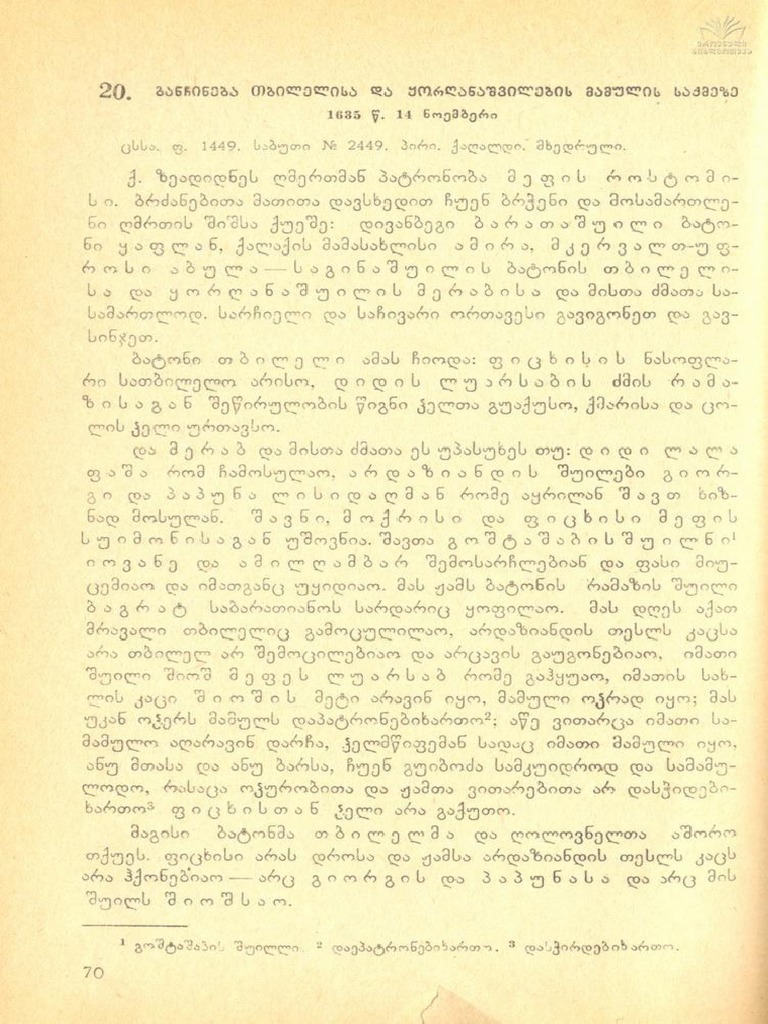 ეროვნული
ბიბლიოთეკა
20. განჩინება თბილელისა და ყორღანაშვილების მამულის საქმეზე
1635 წ. 14 ნოემბერი
ცსსა. ფ. 1449. საბუთი № 2449. პირი. ქაღალდი. მხედრული.
ქ. ზეადიდნეს ღმერთმან პატრონობა მეფის როსტომი-
სი. ბრძანებითა მათითა დავსხედით ჩუენ ბრჭენი და მოსამართლე-
ნი ღმრთის შიშსა ქუეშე: დივანბეგი ბარათაშუილი ბატო-
ნი ყაფლან, ქალაქის მამასახლისი ამირა, მკერვალთ-უფ-
როსი აბულა — საგინაშუილის ბატონის თბილელი-
სა და ყორღანაშუილის მერაბისა და მისთა ძმათა სა-
სამართლოდ. სარჩიელი და საჩივარი ორთავესი გავიგონეთ და გავ-
სინჯეთ.
ბატონი თბილელი ამას ჩიოდა: ფიცხისის ნასოფლა-
რი სათბილელო არისო, დიდის ლუარსაბის ძმის რამა-
ზისაგან შეწირულობის წიგნი ჴელთა გუაქუსო, ქმარისა და ცო-
ლის ჴელი ურთავსო.
და მერაბ და მისთა ძმათა ეს უპასუხეს თუ: დიდი ლალა
ფაშა რომ ჩამოსულაო, არდაზიანდის შუილები გიორ-
გი და პაპუნა ლისიდაღმან რომე აყრილან შავთ ხიზ-
ნად მოსულან. შავნი, მოქრისი და ფიცხისი მეფის
სუიმონისაგან უშოვნია. შავთა გოშტაშაბისშუილნი¹
იოვანე და ამილღამბარ შემოსარჩლებიან და ფასი მიუ-
ცემიაო და იმათგანც უყიდიაო. მას ჟამს ბატონის რამაზის შუილი
ბაგრატ საბარათიანოს სარდარიც ყოფილაო. მას დღეს აქათ
მრავალი თბილელიც გამოცულილაო, არდაზიანდის თესლს კაცსა
არა თბილელ არ შემოცილებიაო და არცავის გაუგონებიაო, იმათი
შუილი შიოშ მეფეს ლუარსაბ რომე გაჰყუაო, იმათის სახ-
ლის კაცი შიოშის მეტი არავინ იყო, მამული ოჴრად იყო; მას
უკან ოჴერს მამულს დაპატრონებიხართო²; აწე ვითარცა იმათი სა-
მამულო აღარავინ დარჩა, ჴელმწიფემან სადაც იმათი მამული იყო,
ანუ მთასა და ანუ ბარსა, ჩუენ გუიბოძა სამკუიდროდ და სამამუ-
ლოდო, რასაცა ოჴურობითა და ჟამთა ვითარებითა არ დასჭიდები-
ხართო³ ფიცხისთან ჴელი არა გაქუთო.
მაგისი ბატონმა თბილელმა და ღოლოვნელთა აშორო
თქუეს. ფიცხისი არას დროსა და ჟამსა არდაზიანდის თესლს კაცს
არა ჰქონებიაო — არც გიორგის და პაპუნასა და არც მის
შუილს შიოშსაო.
¹ გოშტაშაბის შუილლი. ² დაეპატრონებიხართო. ³ დასჭირდებიხართო.
70